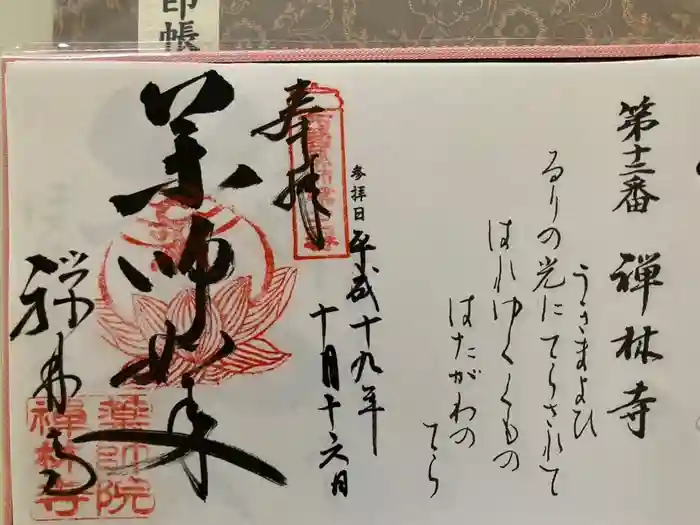 印帳
第十二番 禅林寺
るりの光にてらされて
うきまよひ
はれゆくくもの
はたがわの
てら
参拝日 平成十九年
十月十六日
奉拝
薬師如来
禅林寺
薬師院
禅林寺